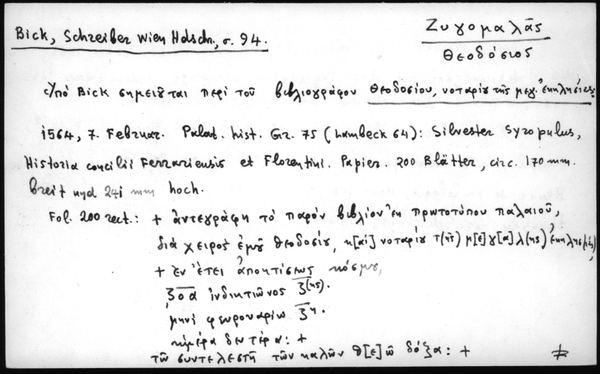 Bick, Schreiber Wien Hdschr., σ. 94.
Ζυγομαλᾶς
Θεοδόσιος
Ὑπὸ Bick σημειοῦται περὶ τοῦ βιβλιογράφου Θεοδοσίου, νοταρίου τῆς μεγ. ἐκκλησίας
1564, 7. Februar. Palat. hist. Gr. 75 (Lambeck 64): Silvester Syropulus,
Historia concilii Ferrariensis et Florentini. Papier. 200 Blätter, circ. 170 mm.
breit und 241 mm hoch.
Fol. 200 rect.: + ἀντεγράφη τὸ παρὸν βιβλίον ἐκ πρωτοτύπου παλαιοῦ,
διὰ χειρὸς ἐμοῦ θεοδοσίου, κ[αὶ] νοταρίου τ(ῆς) μ[ε]γ[ά]λ(ης) ἐκκλησ(ίας)
+ ἐν ἔτει ἀπὸ κτίσεως κόσμου,
ζοα ἰνδικτιῶνος ζ(ης).
μηνὶ φευρουαρίω ζη.
ἡμέρα δευτέρα: +
τῶ συντελεστῆ τῶν καλῶν θ[ε]ῶ δόξα: +